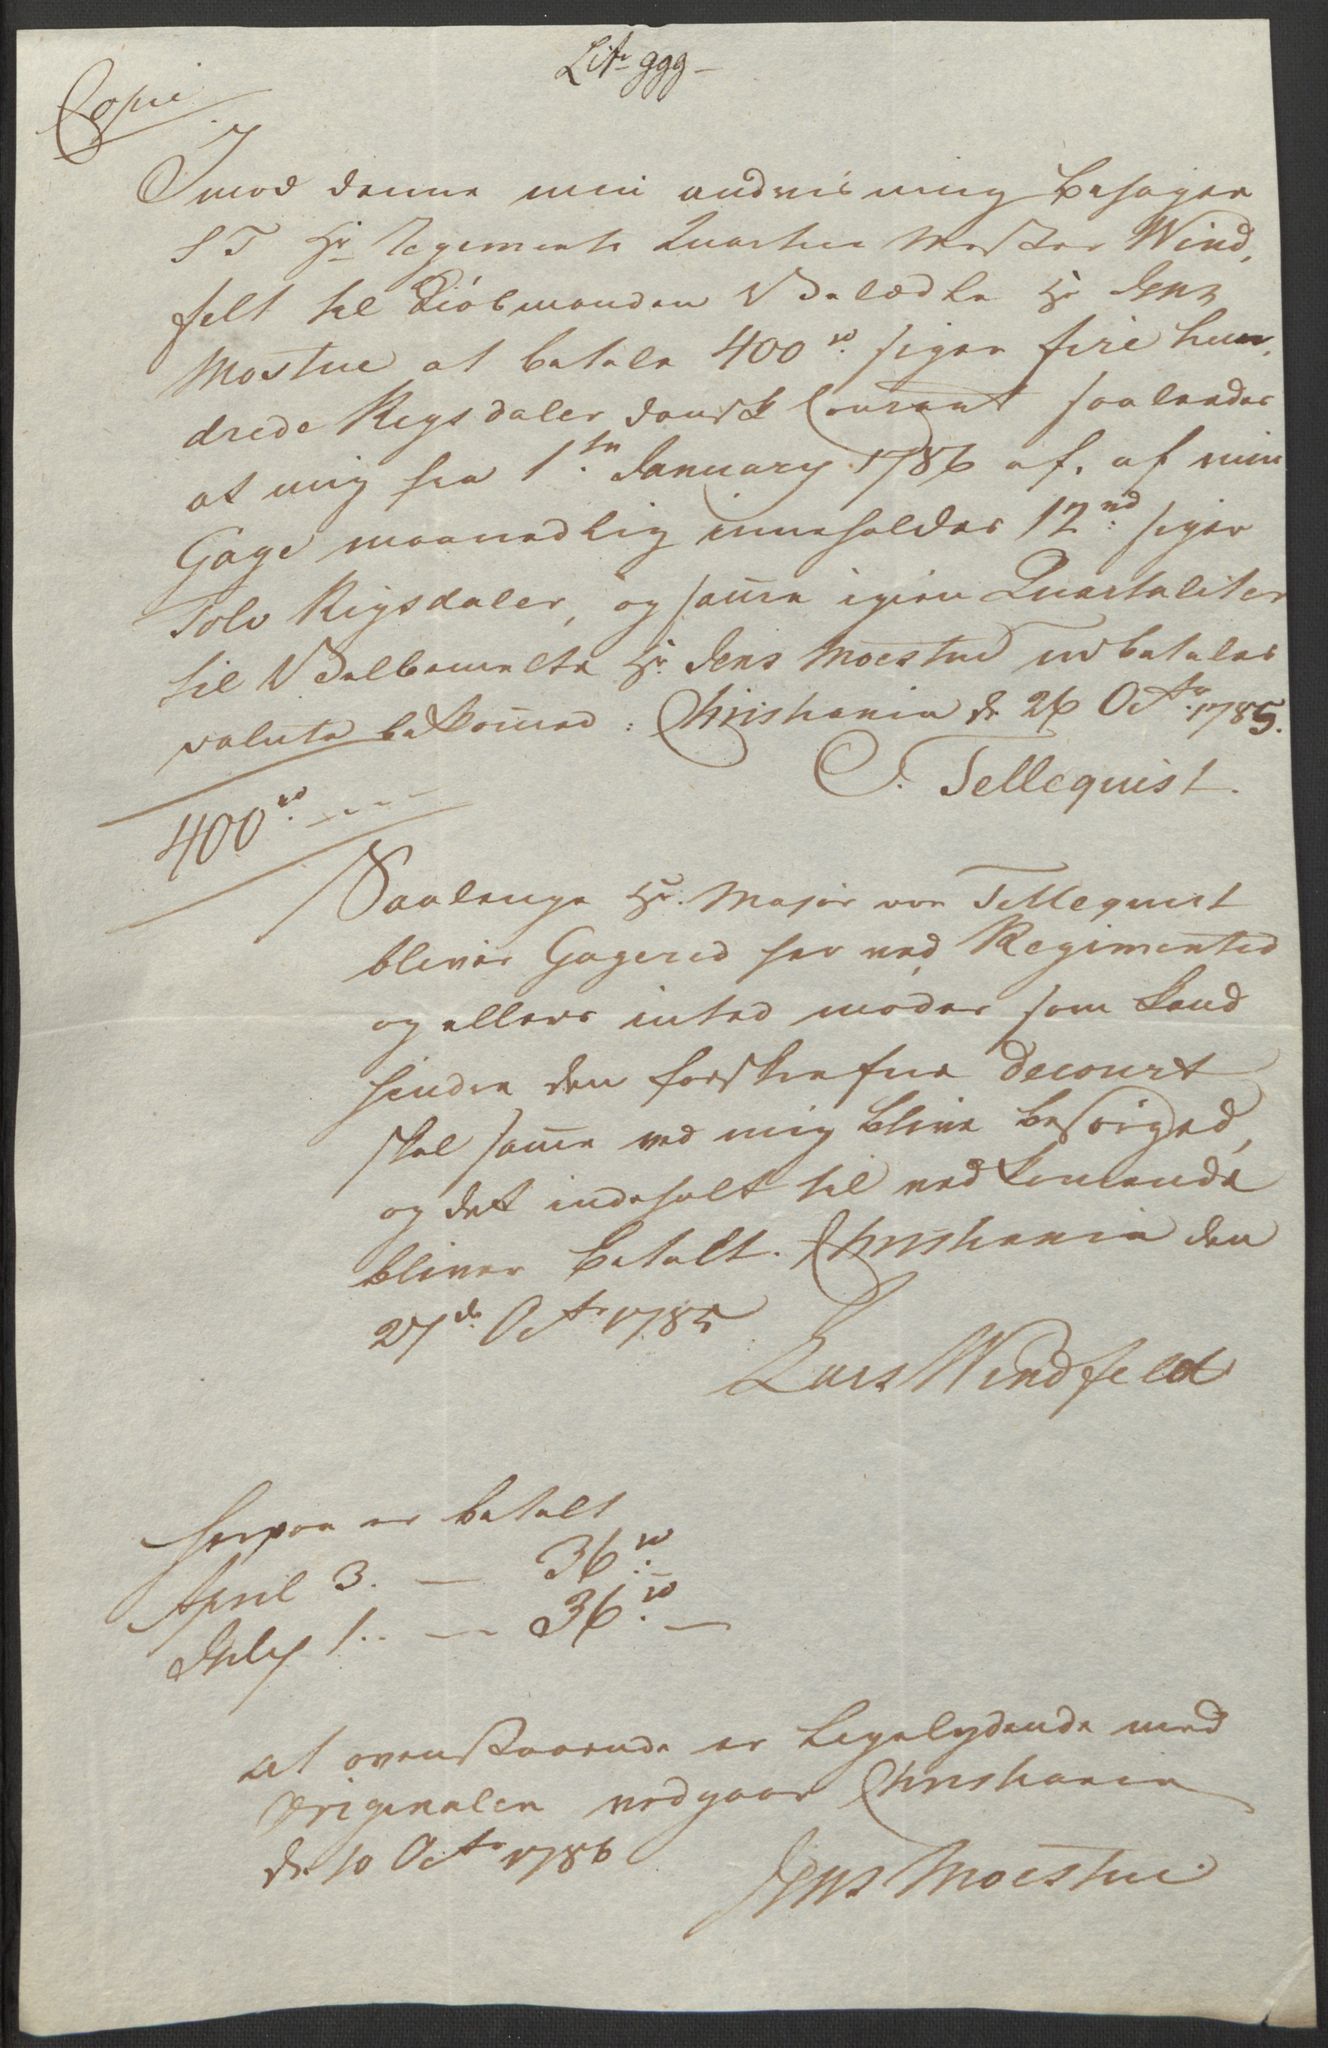 Litr ggg
Copie
Imod denne min andviisning behager
S T Hr Regiments Quarteer Mester Wind,
felt til Kiöbmanden Velædle Hr Jens
Mostue at betale 400 rd. siger fire hun,
drede Rigsdaler dansk Courant saaledes
at mig fra 1.tn January 1786 af, af min
Gage maanedlig inneholdes 12 rd. siger
Tolv Rigsdaler, og samme igien Quartaliter
til Velbemelte Hr. Jens Moestue udbetales
valuta bekommed: Christiania d. 26 Octbr. 1785.
C. F. Tellequist.
400 rd.
Saalenge Hr. Major von Tellequist
bliver Gagered her ved Regimented
og ellers inted möder som kand
hindre den forskrefne Decourt
skal samme ved mig blive besörged,
og det indeholt til vedkommende
bliver betalt. Christiania den
27 de Octr 1785
Lars Windfeld
herpaa er betalt
April 3. — 36 rd.
July 1. — 36 rd. —
at ovenstaaende er Ligelydende med
Originalen vedgaar Christiania
d. 10 Octr 1786
Jens Moestue.